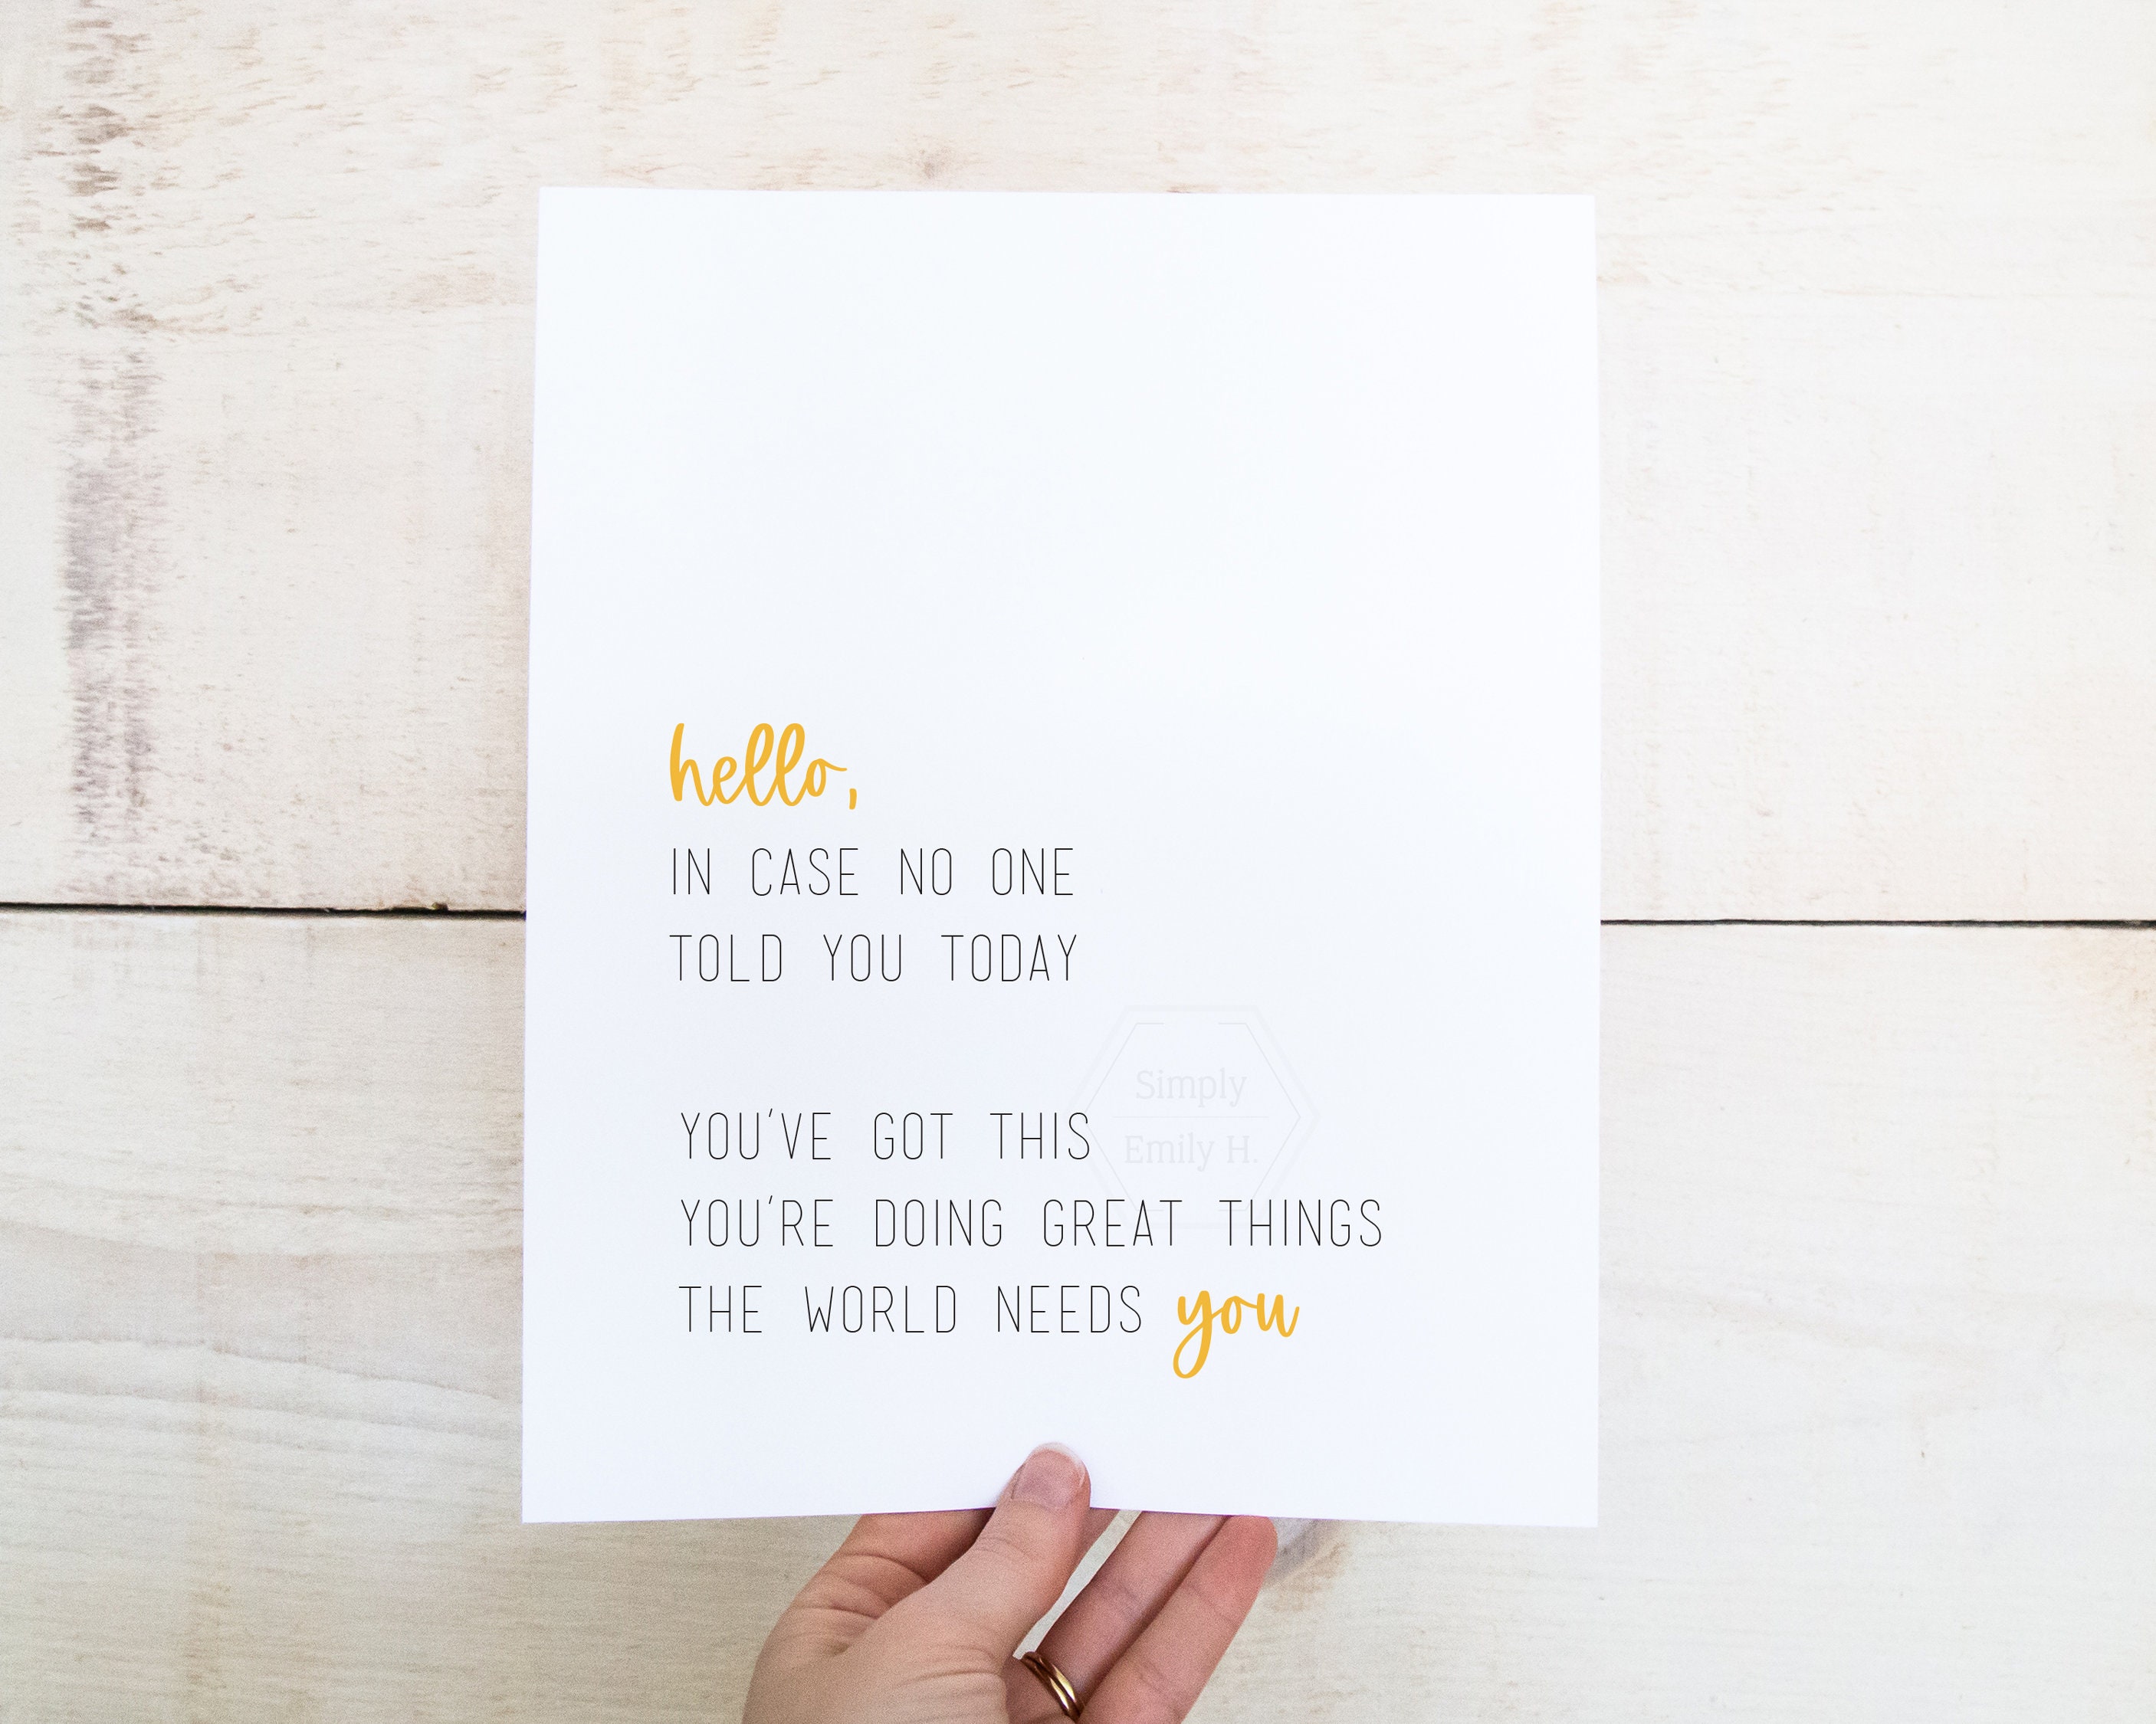 hello,
IN CASE NO ONE
TOLD YOU TODAY
Simply
Emily H.
YOU'VE GOT THIS
YOU'RE DOING GREAT THINGS
THE WORLD NEEDS you